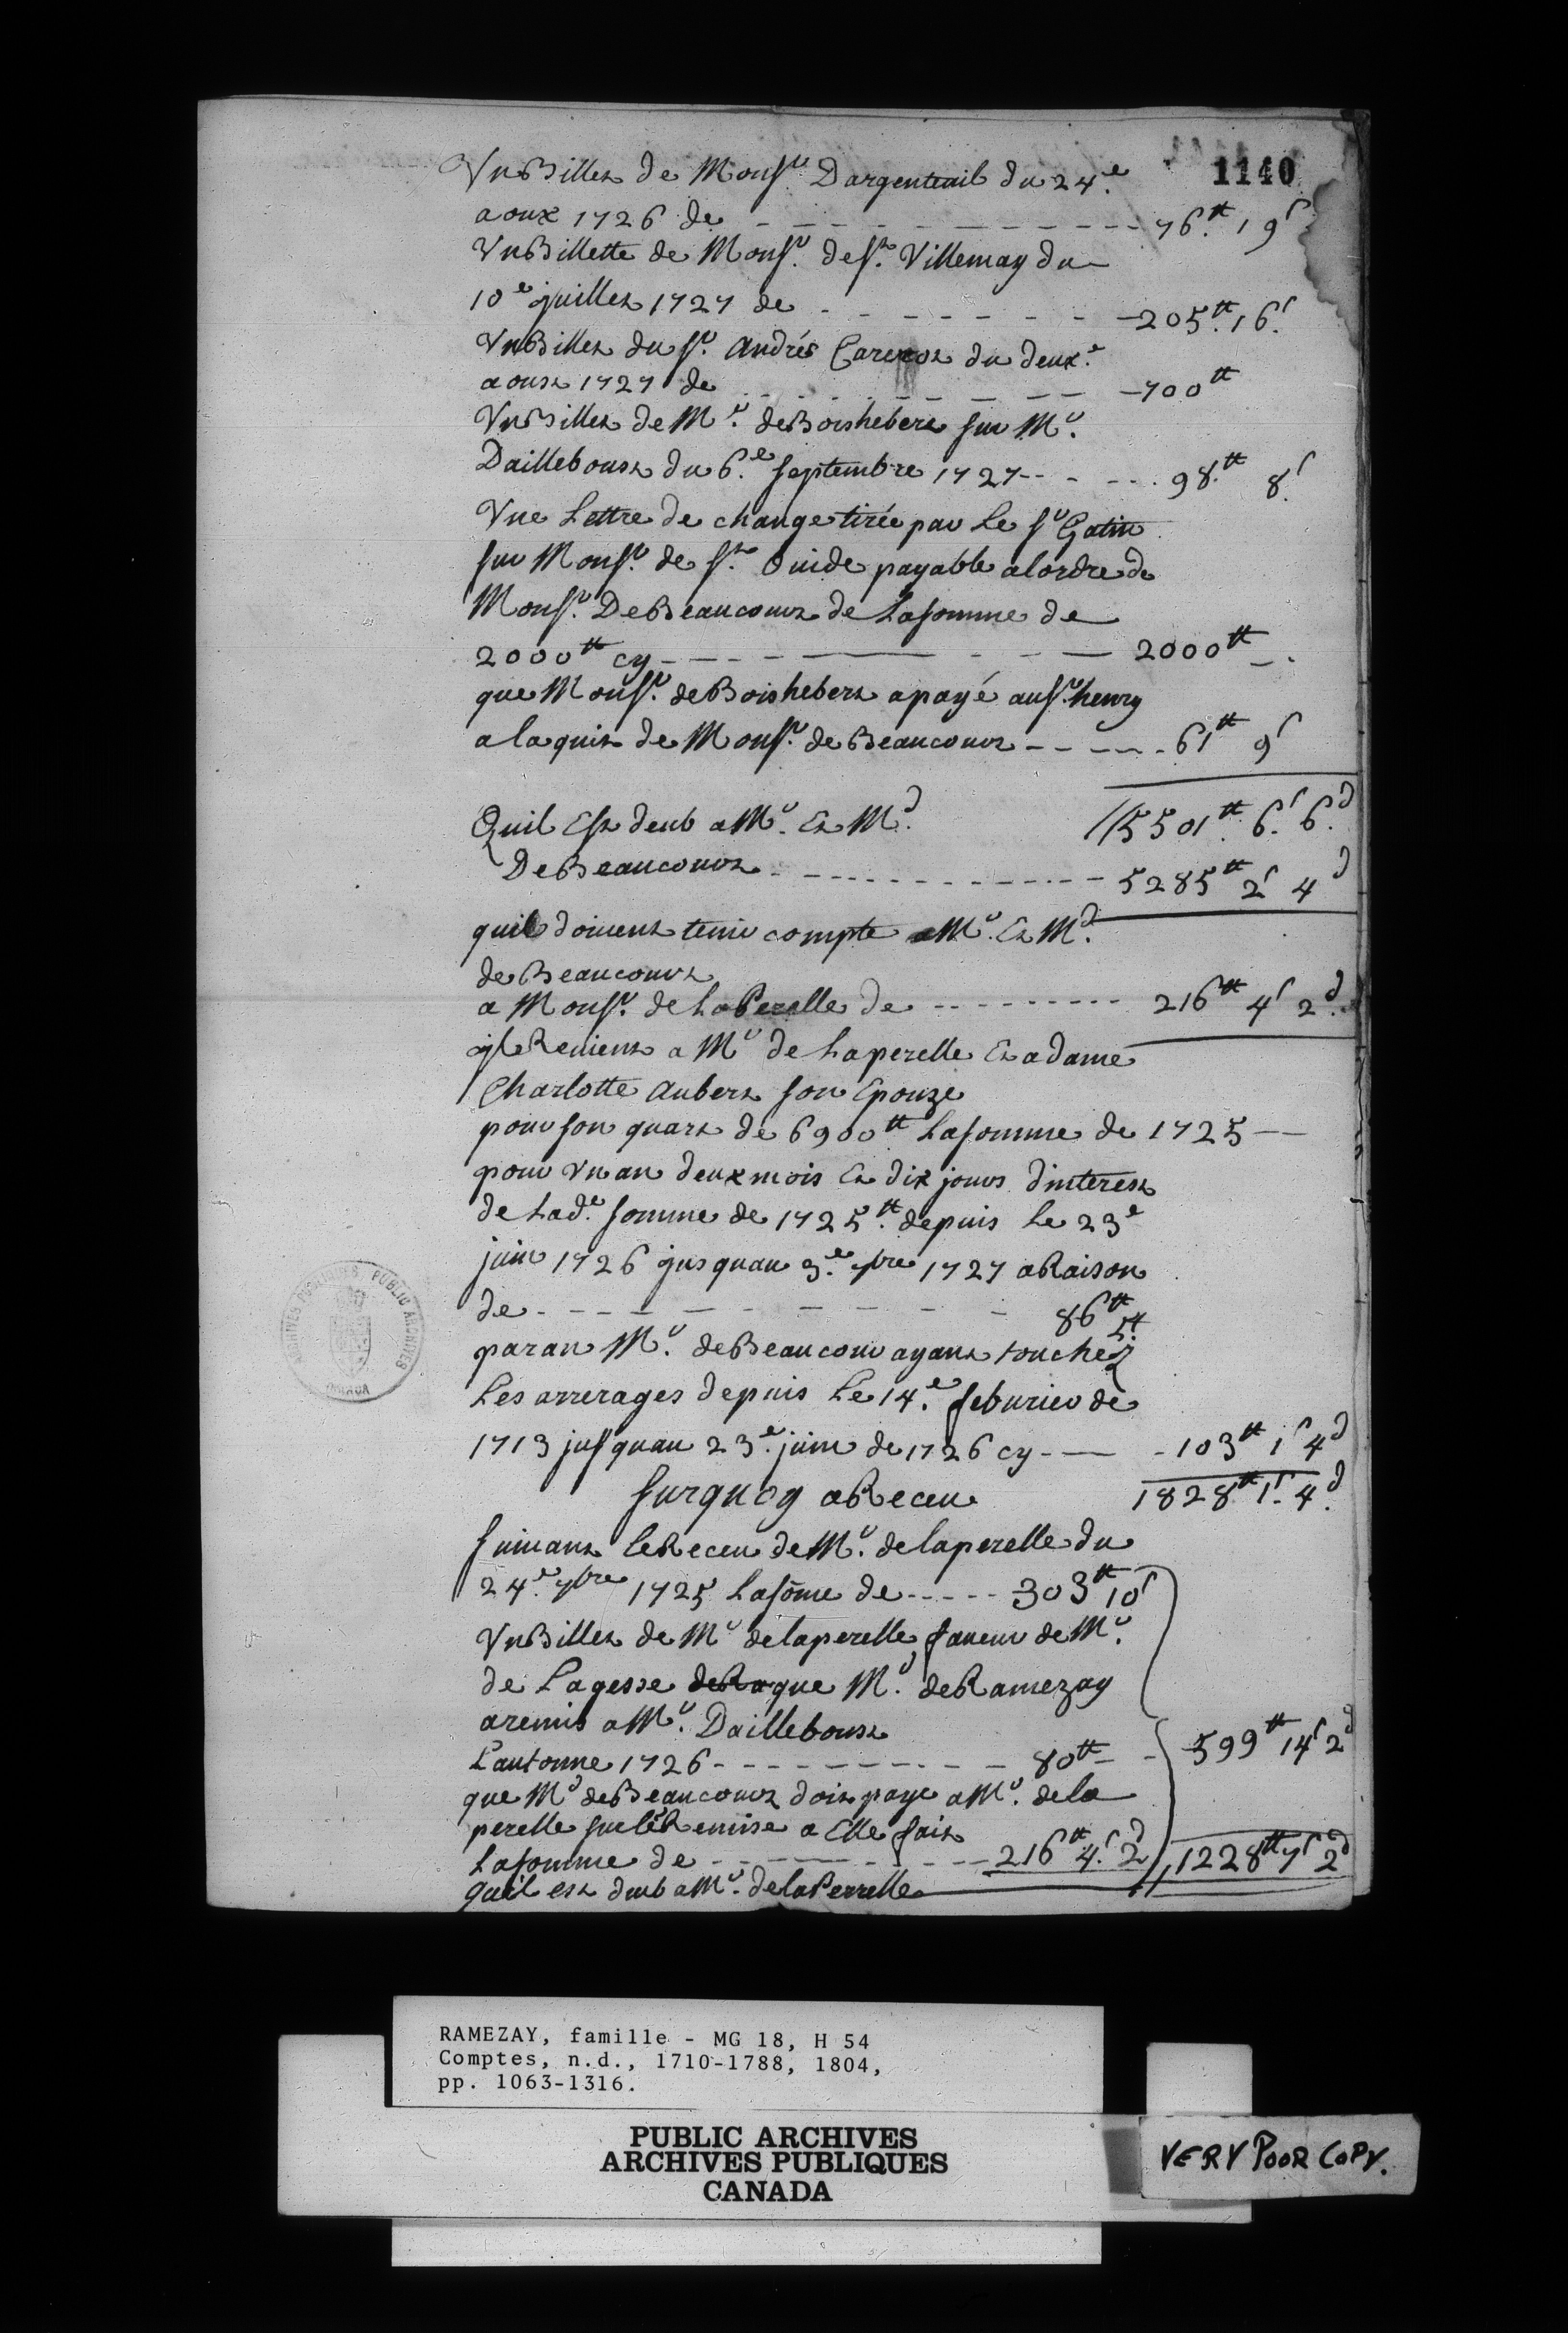 1140
Un Billet de Monsr. Dargenteuil du 24e.
aoux 1726 de - - - - - - - - - - 76.tt 19s
Un Billette de Monsr. de st. Villemay du
10e juillet 1727 de - - - - - - - - 205.tt 16s
Un Billet du sr. andrés Carerot du deuxe.
aoust 1727 de - - - - - - - - 700tt
Un Billet de Mr. de Boishebert sur Mr.
Dailleboust du 6.e septembre 1727 - - - - - 98tt 8s
Vne Lettre de change tirée par Le sr Gatin
sur Monsr. de st. Ouide payable alordre de
Monsr. De Beaucourt de La somme de
2000tt cy - - - - - - - - 2000tt - .
que Monsr. de Boishebert a payé au sr. henry
a laquit de Monsr. de Beaucourt - - - - - 61tt 9s
//5501tt. 6s. 6d.
Quil Est deub a Mr. Et Md.
De Beaucourt - - - - - - - - - - 5285tt 2s 4d
quil doivent tenir compte a Mr. Et Md.
de Beaucourt
a Monsr. de La Perelle de - - - - - - - - - 216tt 4s 2d.
jl Revient a Mr de Laperelle Et a dame
Charlotte aubert son Epouze
pour son quart de 6900tt La somme de 1725 —
pour vn an deux mois Et dix jours dinterest
de Lade. somme de 1725tt. depuis Le 23e
juin 1726 jusquau 3.e 7bre 1727 a Raison
de - - - - - - - - - 86tt 5s
par an Mr. de Beaucour ayant touchez
Les arrerages depuis Le 14.e feburier de
1713 jusquau 23e. juin de 1726 cy - — - 103tt 1s 4d
surquoy a Receu 1828tt 1s. 4d.
suivant le Receu de Mr. de laperelle du
24.e 7bre 1725 La sōme de - - - - - 303tt 10s
Un Billet de Mr de laperelle, faveur de Mr.
de Lagesse de Ra que Mr. de Ramezay
a remis a Mr. Dailleboust
Lautonne 1726 - - - - - - - - - 80tt - - 599tt 14s 2d
que Md de Beaucourt doit paye a Mr. de la
perelle sur le Remise a Elle fait
La somme de - - - - - - - - - 216tt 4s. 2d //1228tt 7s 2d
quil est deub a Mr. de la Perrelle
ARCHIVES PUBLIQUES PUBLIC ARCHIVES
CANADA
RAMEZAY, famille - MG 18, H 54
Comptes, n.d., 1710-1788, 1804,
pp. 1063-1316.
PUBLIC ARCHIVES
ARCHIVES PUBLIQUES
CANADA
VERY POOR COPY.